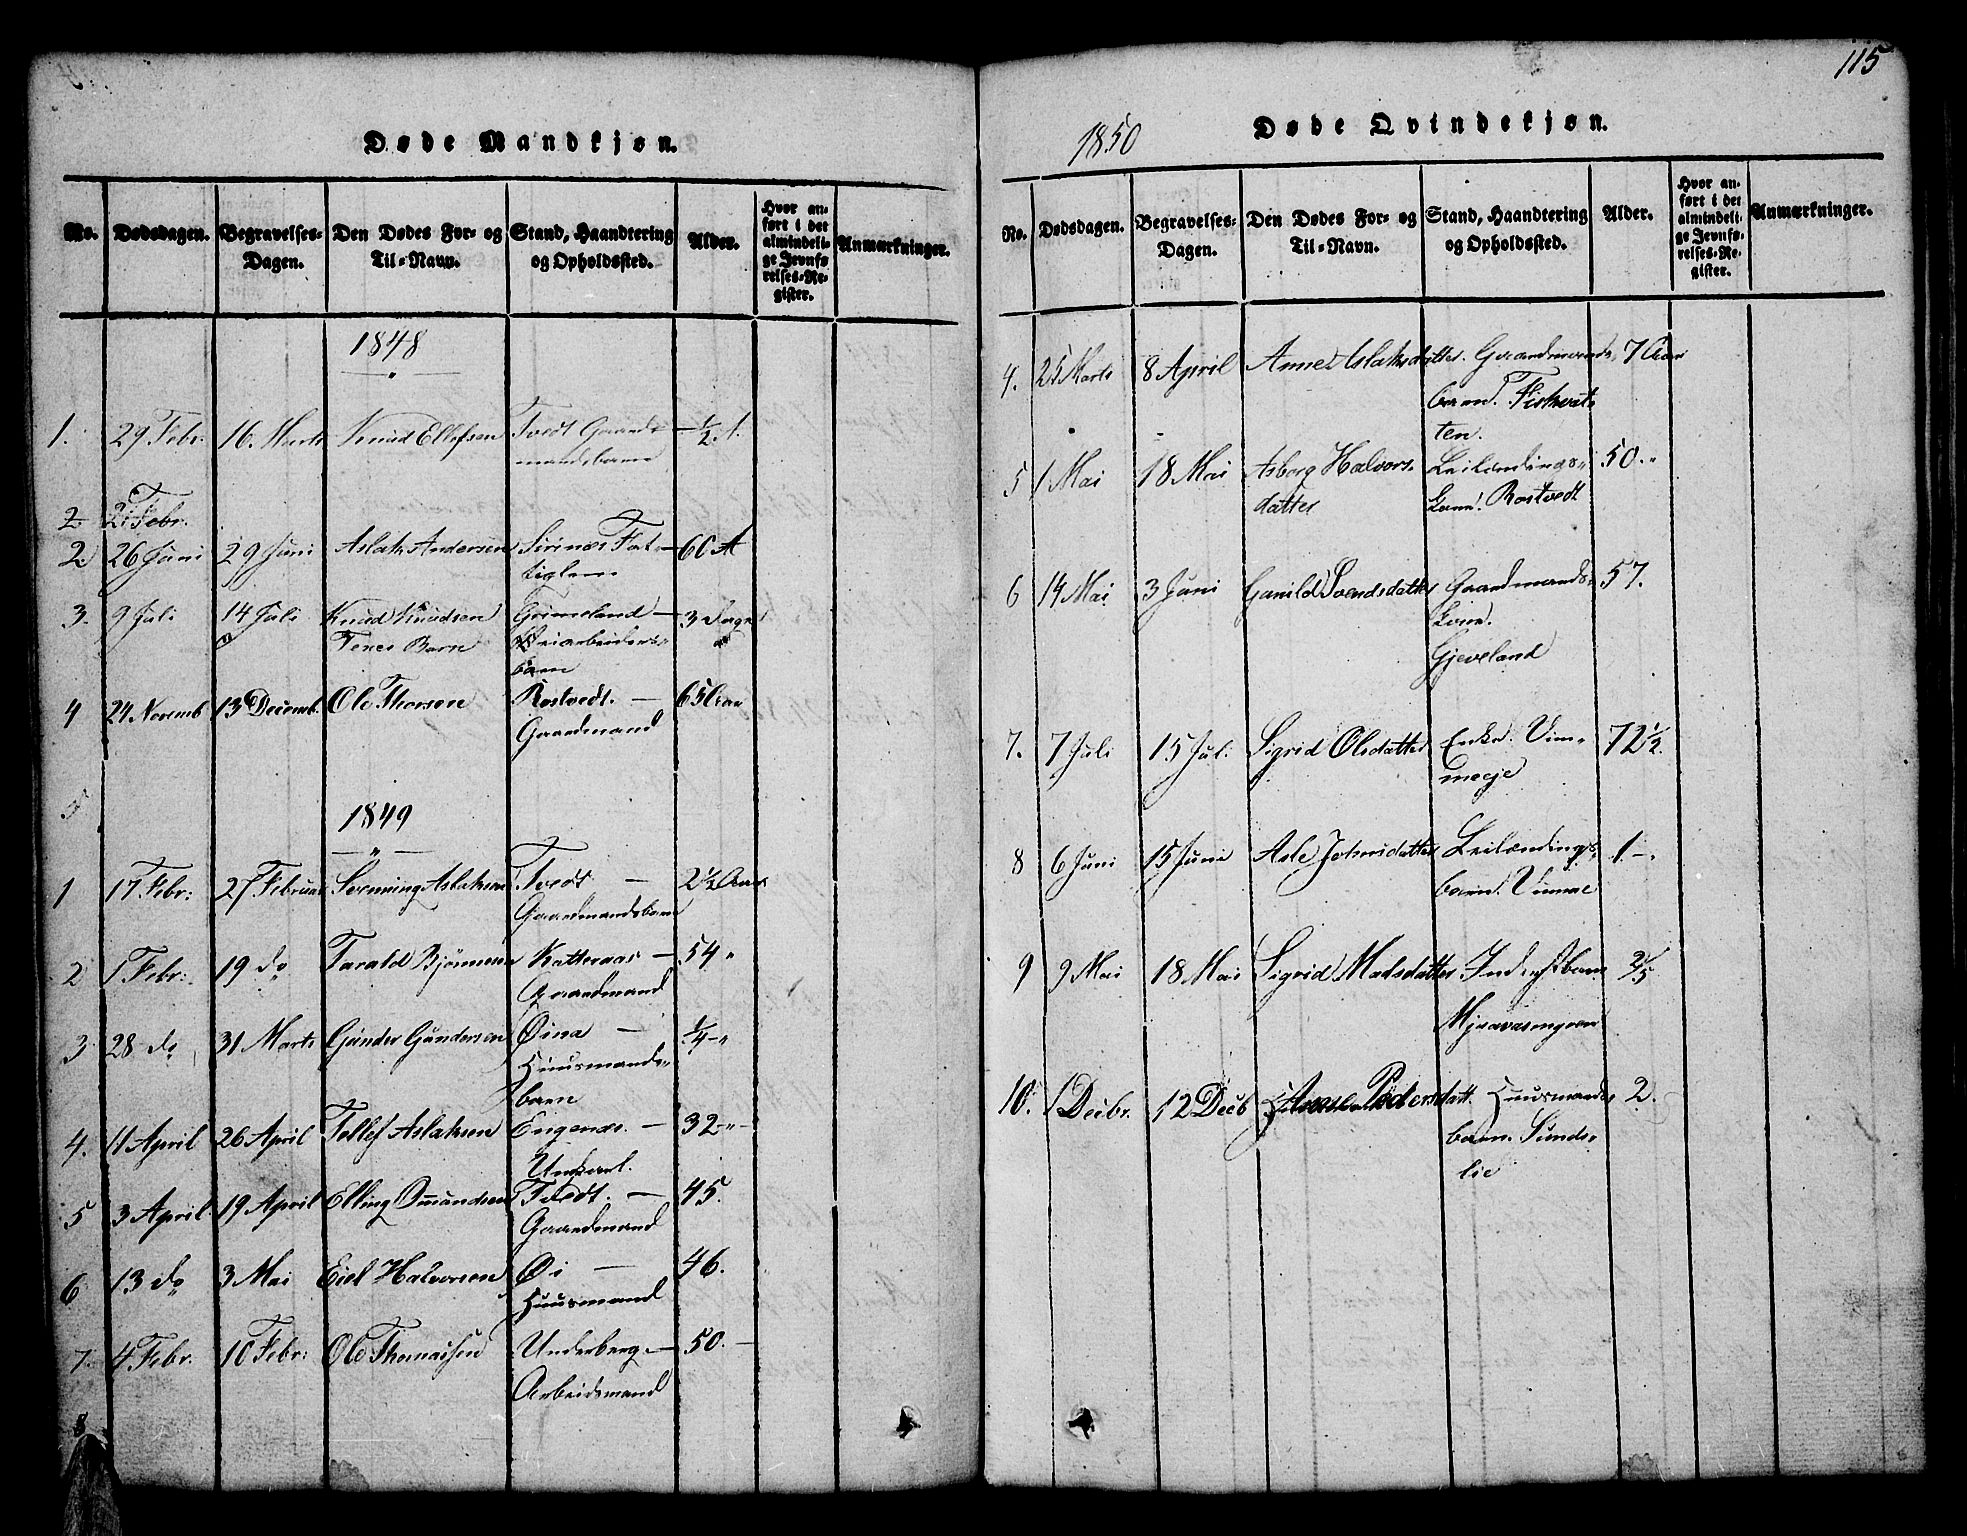 Døde Mandkjøn.
No. Dødsdagen. Begravelses-Dagen. Den Dødes For- og Til-Navn. Stand, Haandtering og Opholdssted. Alder. Hvor anført i det almindelige Jevnførelses-Register. Anmærkninger.
1848
1. 29 Febr. 16. Marts Knud Ellefsen Tvedt Gaardmandsbarn ½ A.
2 2 Febr.
2 26 Juni 29 Juni Aslak Andersen Sirinæs Fattiglem 60 A
3. 9 Juli 14 Juli Knud Knudsen Grimeland
Barn Veiarbeiders-
barn 3 Dage
4 24 Novemb. 13 Decemb. Ole Thorsen Rostvedt. Gaardmand 65 Aar
1849
1 17 Febr: 27 Februar Aslaksen Tvedt Gaardmandsbarn 2½ Aar
2 1 Febr: 19 do Tarald Bjørnsen Katteraas Gaardmand 54 "
3 28 do 31 Marts Gunder Gundersen Øina Huusmands-
barn ¼ "
4. 11 April 26 April Tellef Aslaksen Engenæs. Unkarl. 32 "
5 3 April 19 April Elling Omundsen Tvedt. Gaardmand 45.
6 13 do 3 Mai Halvorsen Øi Huusmand 46.
7. 4 Febr. 10 Febr: Ole Thomassen Underberg Arbeidsmand 50.
8
115
1850
Døde Qvindekjøn.
No. Dødsdagen. Begravelses-Dagen. Den Dødes For- og Til-Navn. Stand, Haandtering og Opholdssted. Alder. Hvor anført i det almindelige Jevnførelses-Register. Anmærkninger.
4. 25 Marts 8 April Anne Aslaksdatter. Gaardmands
barn. Fiskvat-
ten. 7 Aar
5 1 Mai 18 Mai Asborg Halvors-
datter Leilændings-
kone. Rostvedt 50. "
6 14 Mai 3 Juni Gunild Svendsdatter Gaardmands-
kone.
Gjeveland 57.
7. 7 Juli 15 Juli Sigrid Olsdatter Enke. Vim-
meeje 72½
8 6 Juni 15 Juni Asle Johnsdatter Leilændings-
barn. Vimme 1 -.
9 9 Mai 18 Mai Sigrid Madsdatter Inderstbarn 2/5
10. 1 Decbr. 12 Decb Anne Pedersdatt. Huusmands
barn. Sunds-
lie 2.